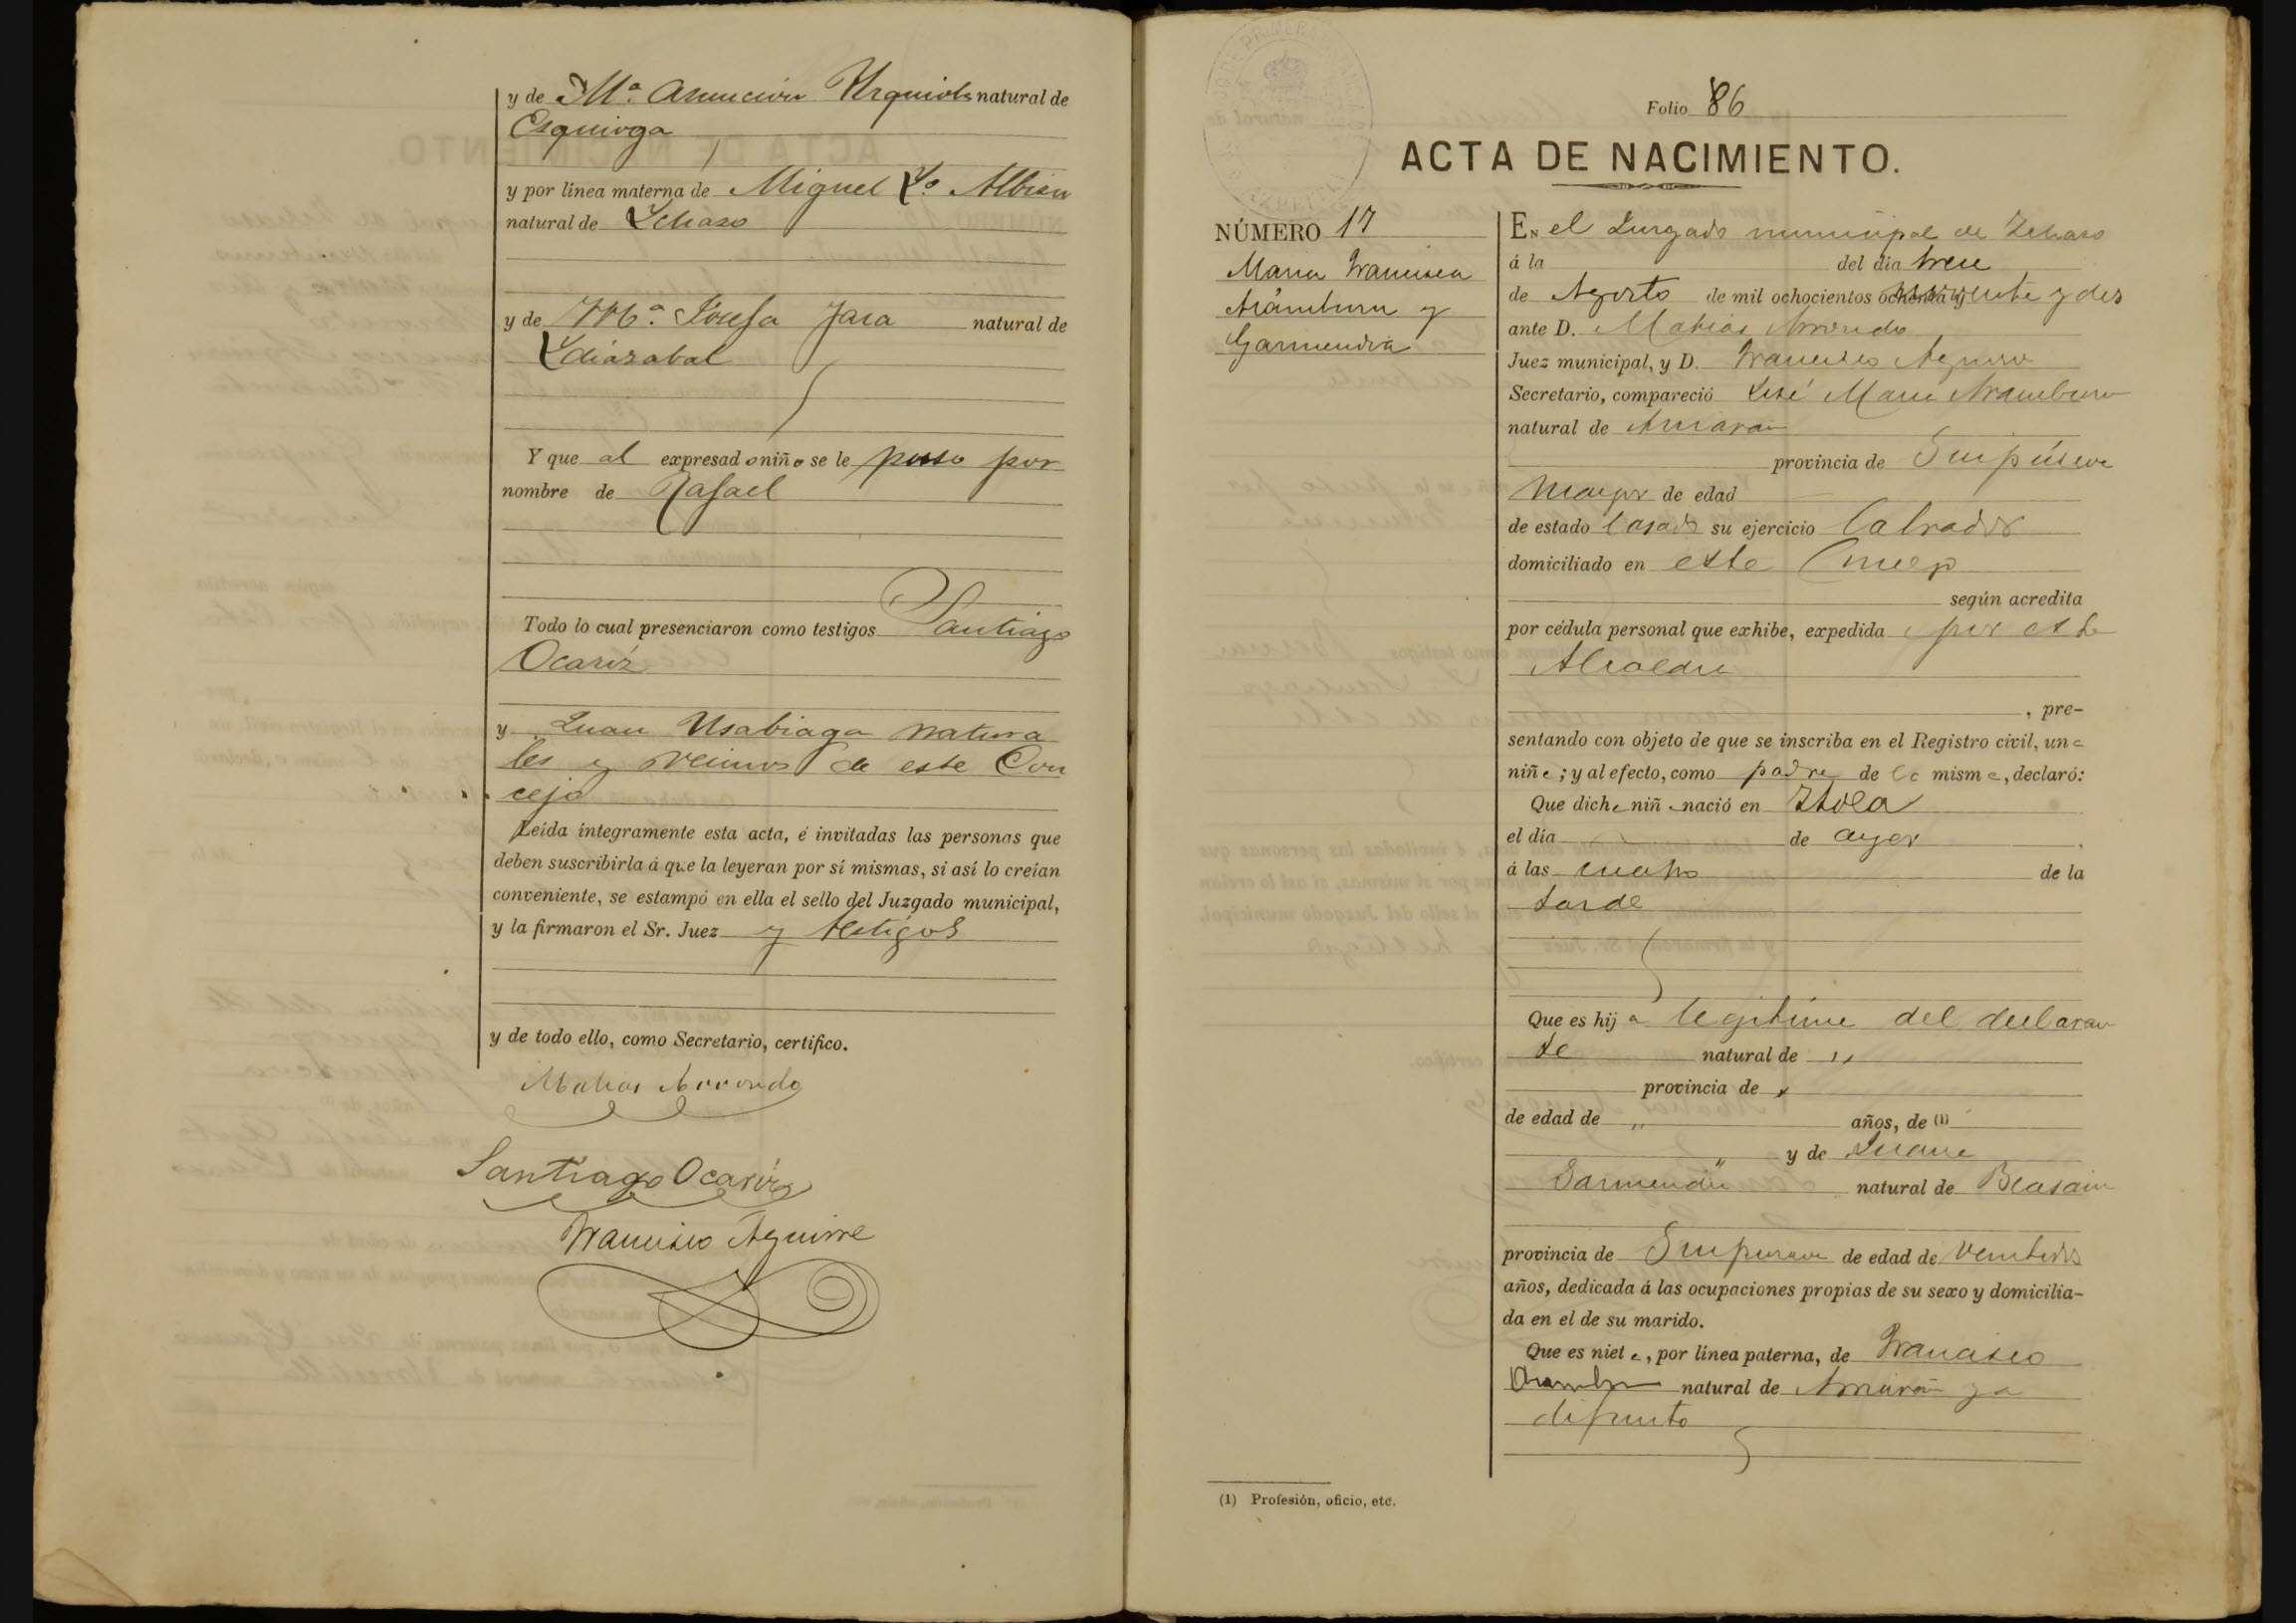 y de Mª. Asuncion Urquiola natural de
Esquioga
y por línea materna de Miguel Yº Albisu
natural de Ychaso
y de Mª. Josefa Jara natural de
Ydiazabal
Y que al expresado niño se le puso por
nombre de Rafael
Todo lo cual presenciaron como testigos Santiago
Ocariz
y Juan Usabiaga natura
les y vecinos de este Con
cejo
Leída íntegramente esta acta, é invitadas las personas que
deben suscribirla á que la leyeran por sí mismas, si así lo creían
conveniente, se estampó en ella el sello del Juzgado municipal,
y la firmaron el Sr. Juez y testigos
y de todo ello, como Secretario, certifico.
Matias Arrondo
Santiago Ocariz
Francisco Aguirre
Folio 86
ACTA DE NACIMIENTO.
NÚMERO 17
Maria Francisca
Arámburu y
Garmendia
EN el Juzgado municipal de Ichaso
á la del día trece
de Agosto de mil ochocientos noventa y dos
ante D. Matias Arrondo
Juez municipal, y D. Francisco Aguirre
Secretario, compareció José Maria Aramburu
natural de
provincia de Guipúzcoa
mayor de edad
de estado casado su ejercicio labrador
domiciliado en este Concejo
según acredita
por cédula personal que exhibe, expedida por esta
Alcaldia
, pre-
sentando con objeto de que se inscriba en el Registro civil, una
niña; y al efecto, como padre de la misma, declaró:
Que dicha niña nació en
el día de ayer
á las cuatro de la
tarde
Que es hija legitima del declaran
te natural de "
provincia de "
de edad de " años, de (1)
" y de Juana
Garmendia natural de Beasain
provincia de Guipuzcoa de edad de veintidos
años, dedicada á las ocupaciones propias de su sexo y domicilia-
da en el de su marido.
Que es nieta, por línea paterna, de Francisco
Aramburu natural de ya
difunto
(1) Profesión, oficio, etc.